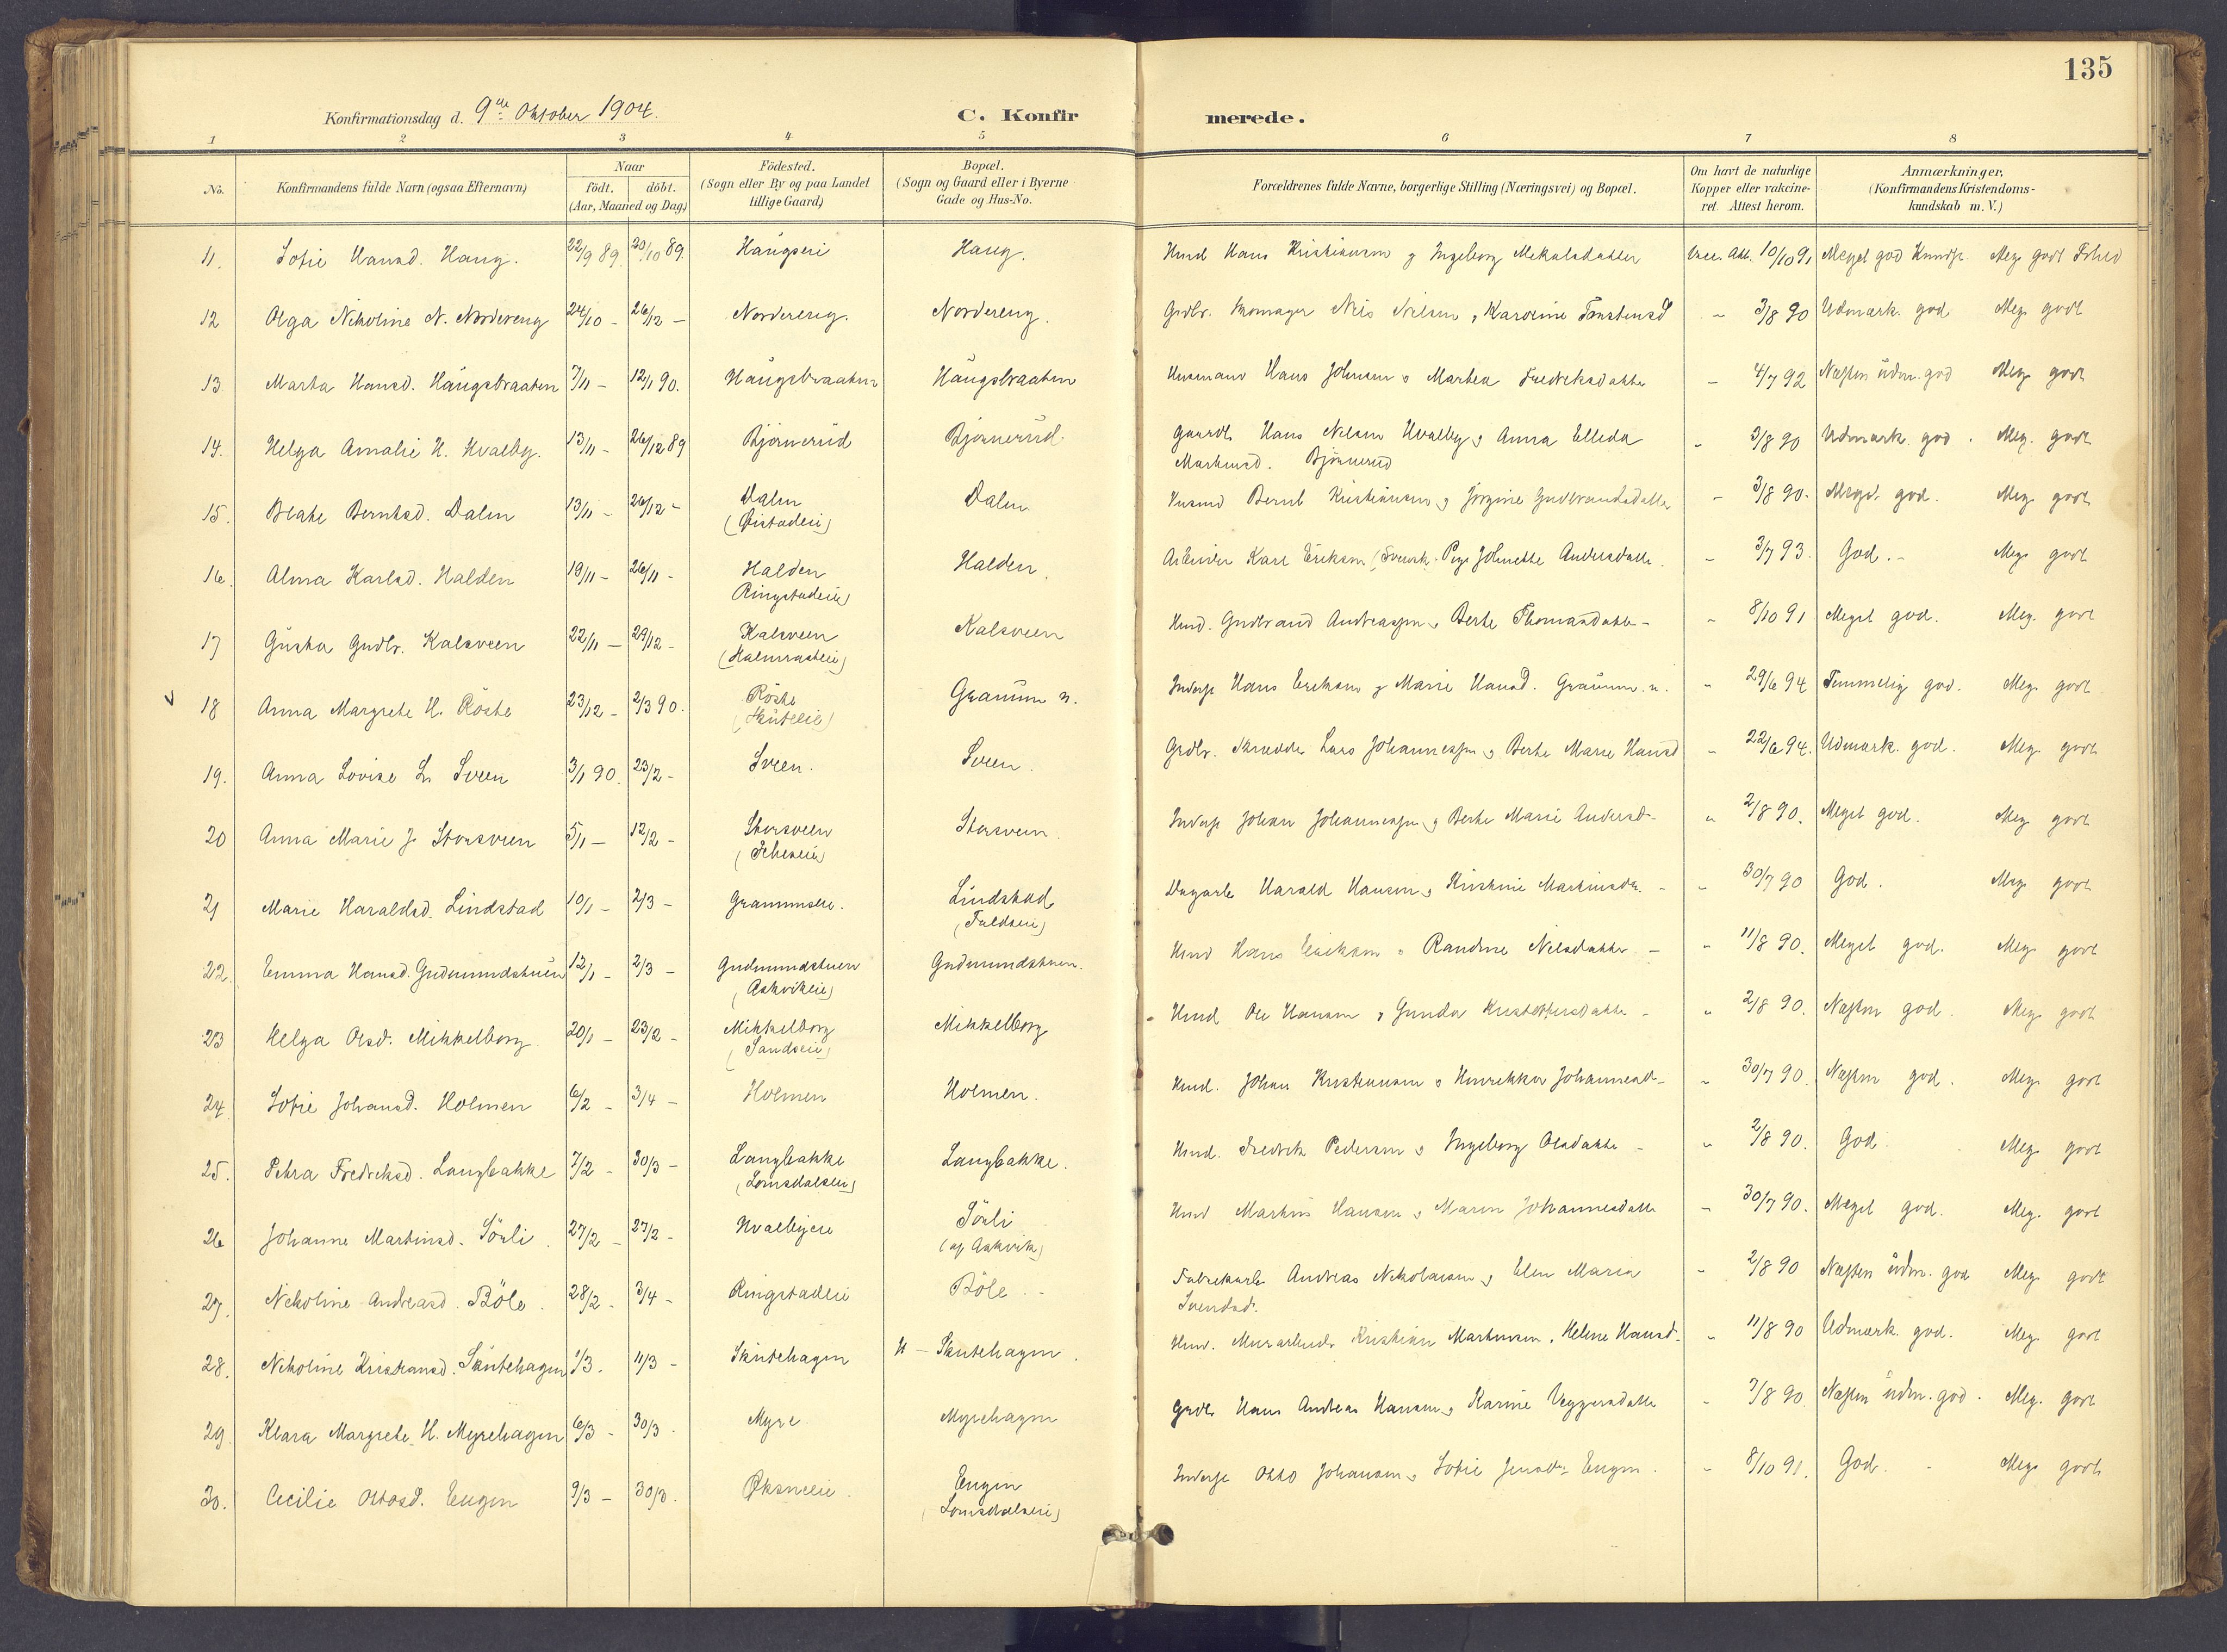 135
Konfirmationsdag d. 9de Oktober 1904.
C. Konfirmerede.
1 2 3 4 5 6 7 8
No.
Konfirmandens fulde Navn (ogsaa Efternavn)
Naar
födt. döbt.
(Aar, Maaned og Dag)
Födested.
(Sogn eller By og paa Landet
tillige Gaard)
Bopæl.
(Sogn og Gaard eller i Byerne
Gade og Hus-No.
Forældrenes fulde Navne, borgerlige Stilling (Næringsvei) og Bopæl.
Om havt de naturlige
Kopper eller vakcine-
ret. Attest herom.
Anmærkninger,
(Konfirmandens Kristendoms-
kundskab m. V.)
11. Sofie Hansd. Haug. 22/9 89. 20/10 89. Haugseie Haug. Hmd Hans Kristiansen og Ingeborg Mikalsdatter Vacc. Att. 10/10 91 Meget god Kundsk. Meg. godt Forhold
12 Olga Nikoline N. Nordereng 24/10 - 26/12 - Nordereng. Nordereng. Grdbr. Skomager Nils Nilsen, Karoline - 3/8 90 Udmærk. god Meg. godt
13. Marta Hansd. Haugsbraaten 7/11 - 12/1 90. Haugsbraaten Haugsbraaten Husmand Hans Johnsen & Marthea Fredriksdatter - 4/7 92 Næsten udm. god Meg. godt
14. Helga Amalie H. Hvalby. 13/11 - 26/12 89 Bjørnerud Bjørnerud. Gaardb. Hans Nilsen Hvalby & Anna Elleda - 3/8 90 Udmærk. god. Meg. godt
Martinsd. Bjørnerud
15. Beate Berntsd. Dalen 13/11 - 26/12 - Dalen Dalen. Husmd Bernt Kristiansen & Jørgine Gudbrandsdatter - 3/8 90. Meget god. Meg. godt
16. Alma Karlsd. Halden 19/11 - 26/11 - Halden Halden. Arbeider Karl Eriksen (Svensk. Pige Johnette Andersdatter. - 3/7 93. God. - Meg. godt
(Ringstadeie)
17 Gusta Gudbr. Kalsveen 22/11 - 29/12 - Kalsveen Kalsveen Hmd. Gudbrand Andreassen & Berte Thomasdatter - - 8/10 91 Meget god. Meg. godt
18 Anna Margrete H. Røste 23/12 - 2/3 90. Røste Granum n. Inderst Hans Eriksen & Marie Hansd. Granum. n. - 29/6 94 Temmelig god. Meg. godt
19. Anna Lovise L. Sveen 3/1 90. 23/2 - Sveen. Sveen. Grdbr. Skrædder Lars Johannessen & Berte Marie Hansd - 22/6 94. Udmærk. god. Meg. godt
20 Anna Marie J. Storsveen 5/1 - 12/2 - Storsveen Storsveen. Inderst Johan Johannessen & Berte Marie Andersd - - 2/8 90. Meget god. Meg. godt
21 Marie Haraldsd. Lindstad 10/1 - 2/3 - Granumseie. Lindstad Dagarb. Harald Hansen & Kristine Martinsdr. - - 30/7 90 God. Meg. godt
22. Emma Hansd. Gudmundstuen 12/1 - 2/3 - Gudmundstuen Gudmundstuen. Hmd Hans Eriksen & Randine Nilsdatter - - 11/8 90. Meget god. Meg. godt
(Askvikeie)
23 Helga Olsd. Mikkelborg 20/1 - 23/2 - Mikkelborg Mikkelborg Hmd Ole Hansen & Gunda Kristoffersdatter - - 2/8 90. Næsten god. Meg. godt
(Sandseie)
24. Sofie Johansd. Holmen 6/2 - 3/4 - Holmen Holmen. Hmd. Johan Kristiansen & Henrikka Johannesd - - 30/7 90. Næsten god. Meg. godt
25. Petra Fredriksd. Langbakke 7/2 - 30/3 - Langbakke Langbakke. Hmd. Fredrik Pedersen & Ingeborg Olsdatter - - 2/8 90. God. Meg. godt
(Lomsdalseie)
26 Johanne Martinsd. Sörli. 27/2 - 27/2 - Hvalbyeie Sörli Hmd Martin Hansen & Maren Johannesdatter - 30/7 90. Meget god. Meg. godt
(af Askvik)
27. Nikoline Andreasd. Böle. 28/2 - 3/4 - Ringstadeie Böle. - Fabrikarb. Andreas Nikolaisen & Elen Maria - 2/8 90 Næsten udm. god Meg. godt
Svendsdr.
28. Nikoline Kristiansd. Skutehagen 1/3. 11/3 - Skutehagen N - Skutehagen. Hmd. Murarbeider Kristian Martinsen, Helene Hansd. - 11/8 90 Udmærk. god. Meg. godt
29. Klara Margrete H. Myrehagen 6/3 - 30/3 - Myre Myrehagen Grdb. Hans Andreas Hansen & Karine Viggersdatter - 7/8 90 Næsten udm. god. Meg. godt
30. Cecilie Ottosd. Engen 9/3 - 30/3. Øksneeie. Engen Inderst Otto Johansen & Sofie Jensdr. Engen. - 8/10 91. God. - Meg. godt
(Lomsdalseie)